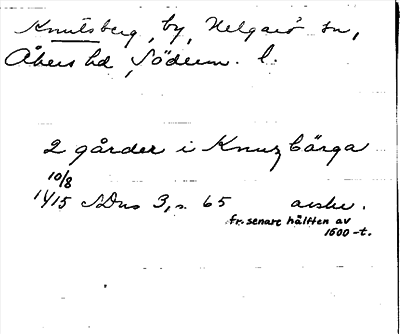 Knutsberg, by, Helgarö sn,
Åkers hd, Söderm. l.
2 gårder i Knuz bärga
10/8
1415 SDns 3, s. 65 avskr.
fr. senare hälften av
1600-t.